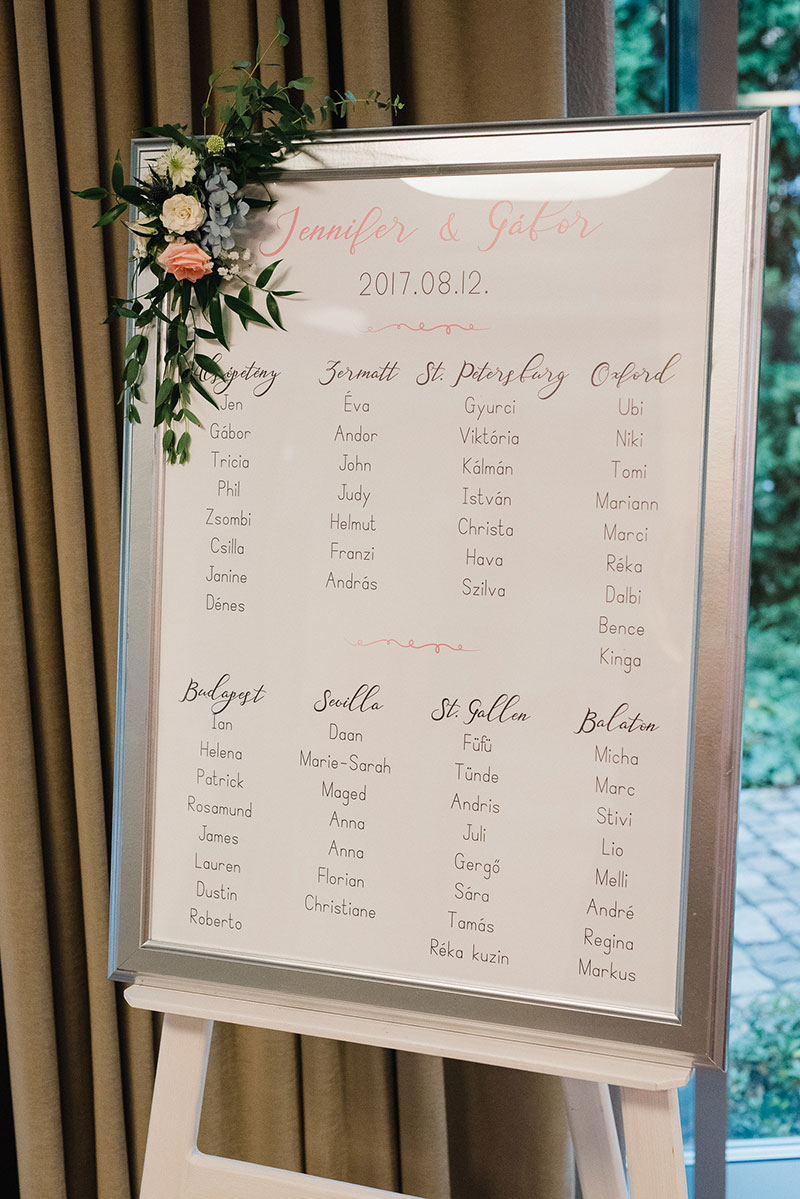 Jennifer & Gábor
2017.08.12.
Zermatt St. Petersburg Oxford
Jen
Gábor
Tricia
Phil
Zsombi
Csilla
Janine
Dénes
Éva
Andor
John
Judy
Helmut
Franzi
András
Gyurci
Viktória
Kálmán
István
Christa
Hava
Szilva
Ubi
Niki
Tomi
Mariann
Marci
Réka
Dalbi
Bence
Kinga
Budapest
Ian
Helena
Patrick
Rosamund
James
Lauren
Dustin
Roberto
Sevilla
Daan
Marie-Sarah
Maged
Anna
Anna
Florian
Christiane
St. Gallen
Füfü
Tünde
Andris
Juli
Gergő
Sára
Tamás
Réka kuzin
Balaton
Micha
Marc
Stivi
Lio
Melli
André
Regina
Markus